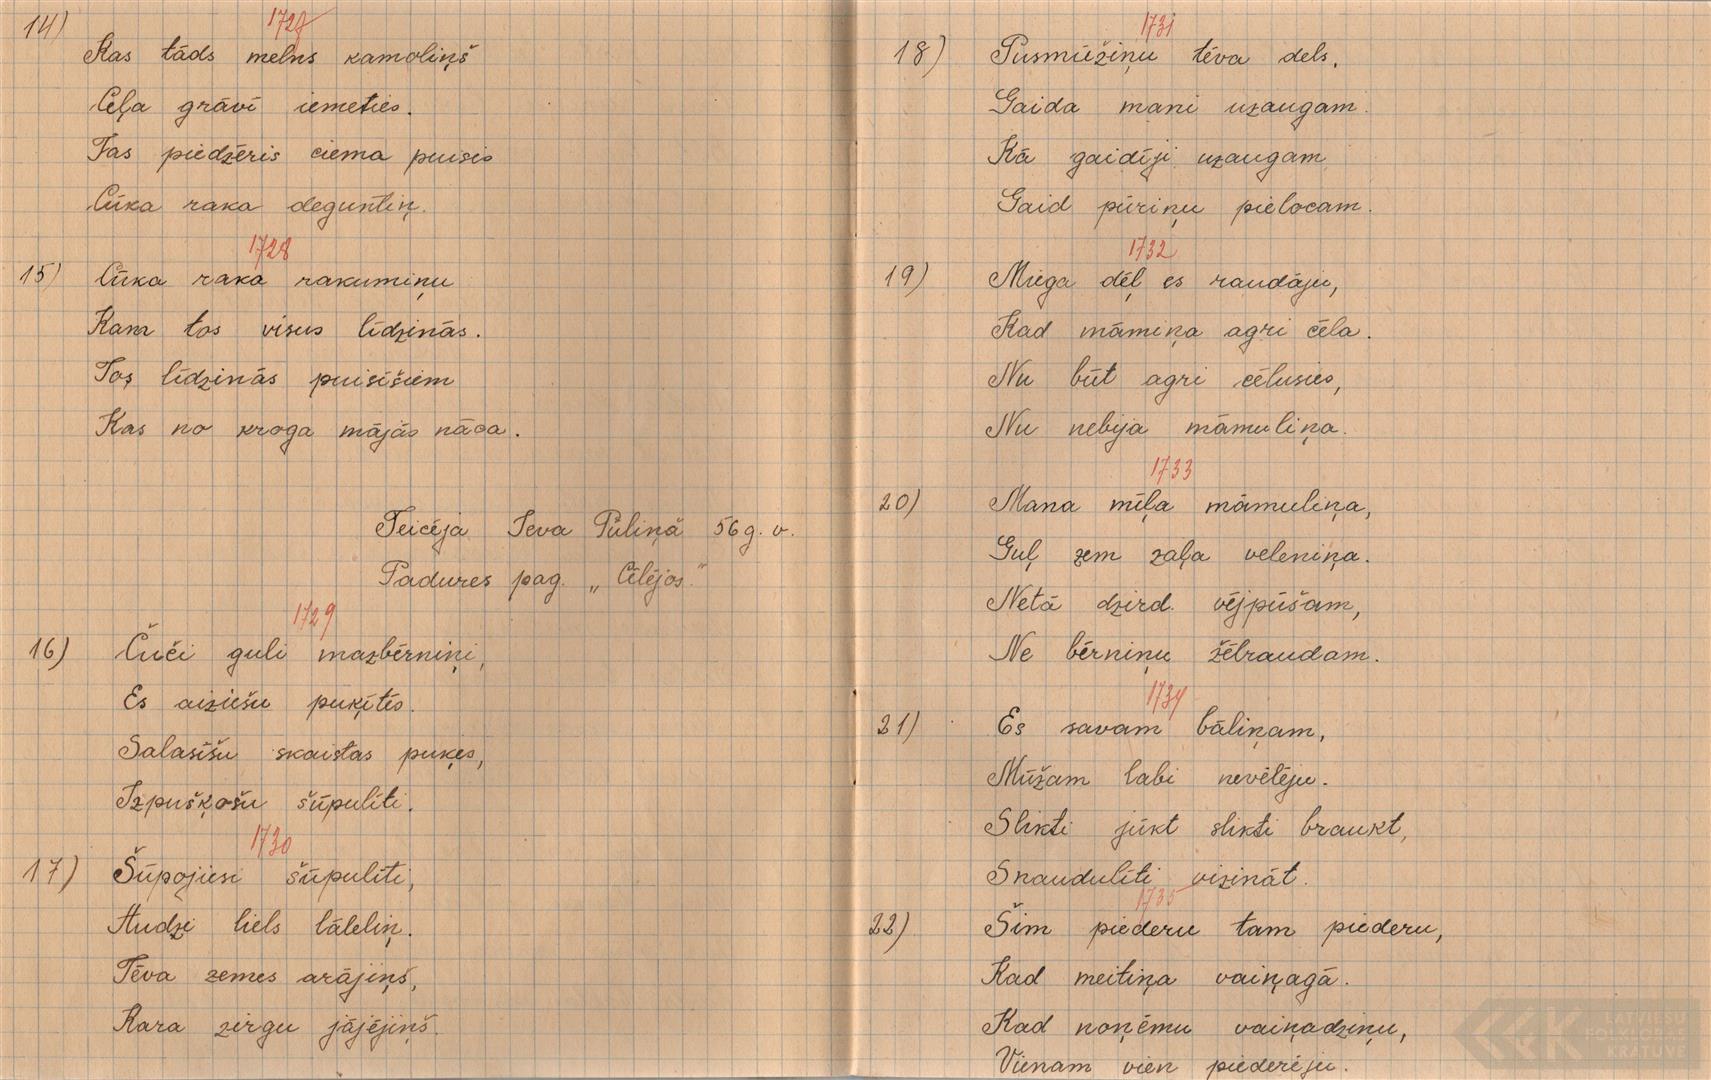 1727
14)
Kas tāds melns kamoliņš
Ceļa grāvī iemeties.
Tas piedzēris ciema puisis
Cūka raka deguntiņ.
1728
15) Cūka raka rakumiņu
Kam tos visus līdzinās.
Tos līdzinās puisīšiem
Kas no kroga mājās nāca.
Teicēja Ieva Pūliņā 56 g. v.
Padures pag. „Cēlējos."
1729
16) Čuči guli mazbērniņi,
Es aiziešu puķītēs.
Salasīšu skaistas puķes,
Izpušķošu šūpulīti.
1730
17) Šūpojiesi šūpulīti,
Audzi liels lāleliņ.
Tēva zemes arājiņš,
Kara zirgu jājējiņš.
1731
18) Pusmūžiņu tēva dels,
Gaida mani uzaugam.
Kā gaidīji uzaugam
Gaid pūriņu pielocam.
1732
19) Miega dēļ es raudāju,
Kad māmiņa agri cēla.
Nu būt agri cēlusies,
Nu nebija māmuliņa.
1733
20) Mana mīļa māmuliņa,
Guļ zem zaļa veleniņa.
Netā dzird. vējpūšam,
Ne bērniņu žēlraudam.
1734
21) Es savam bāliņam,
Mūžam labi nevēlēju.
Slikti jūkt slikti braukt,
Snaudulīti vizināt.
1735
22) Šim piederu tam piederu,
Kad meitiņa vaiņagā.
Kad noņēmu vaiņadziņu,
Vienam vien piederēju.
LATVIEŠU
FOLKLORAS
KRĀTUVE